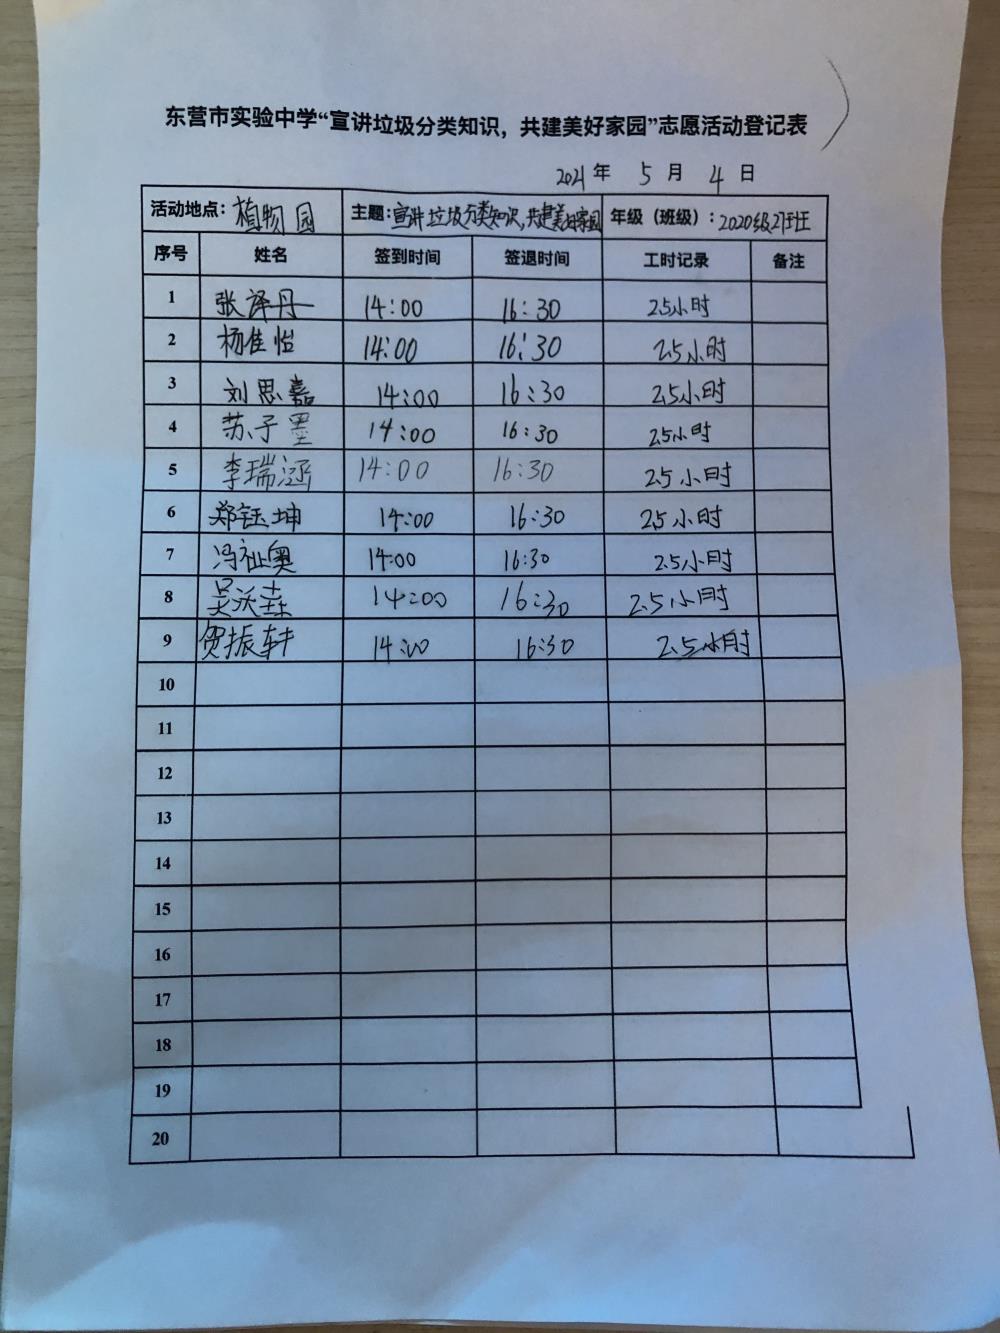 东营市实验中学“宣讲垃圾分类知识，共建美好家园”志愿活动登记表
2021 年 5 月 4 日
活动地点：植物园 主题：宣讲垃圾分类知识，共建美好家园 年级（班级）：2020级27班
序号 姓名 签到时间 签退时间 工时记录 备注
1 张译丹 14:00 16:30 2.5小时
2 杨佳怡 14:00 16:30 2.5小时
3 刘思嘉 14:00 16:30 2.5小时
4 苏子墨 14:00 16:30 2.5小时
5 李瑞涵 14:00 16:30 2.5小时
6 郑钰坤 14:00 16:30 2.5小时
7 冯祉奥 14:00 16:30 2.5小时
8 吴沃 14:00 16:30 2.5小时
9 贺振轩 14:00 16:30 2.5小时
10
11
12
13
14
15
16
17
18
19
20